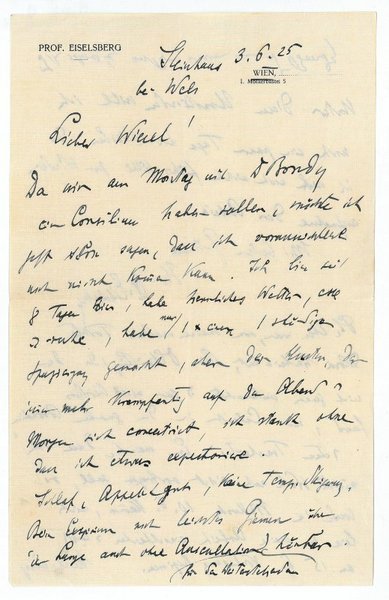 PROF. EISELSBERG
Steinhaus 3.6.25
bei Wels
WIEN,
I. Mölkerbastei 5
Lieber Wiesel!
Da wir am Montag mit Dr Bondy
ein Consilium haben sollen, möchte ich
jetzt schon sagen, dass ich voraussichtlich
noch nicht kommen kann. Ich bin seit
8 Tagen hier, habe herrliches Wetter,
ruhe, habe nur 1 x eine 1 stündigen
Spaziergang gemacht, aber der Husten der
immer mehr krampfartig auf den Abend
Morgen sich concentrirt, ist stark ohne
dass ich etwas expectorire.
Schlaf, Appetit gut, keine Temp. Steigerung.
Beim Exspirium noch leises Giemen über
der Lunge auch ohne Auscultation hörbar
für den